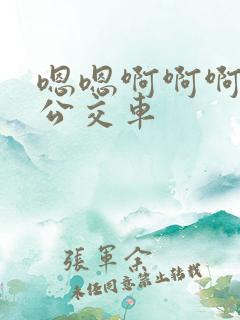 嗯嗯啊啊啊
公交车
張軍余
未经同意禁止转载